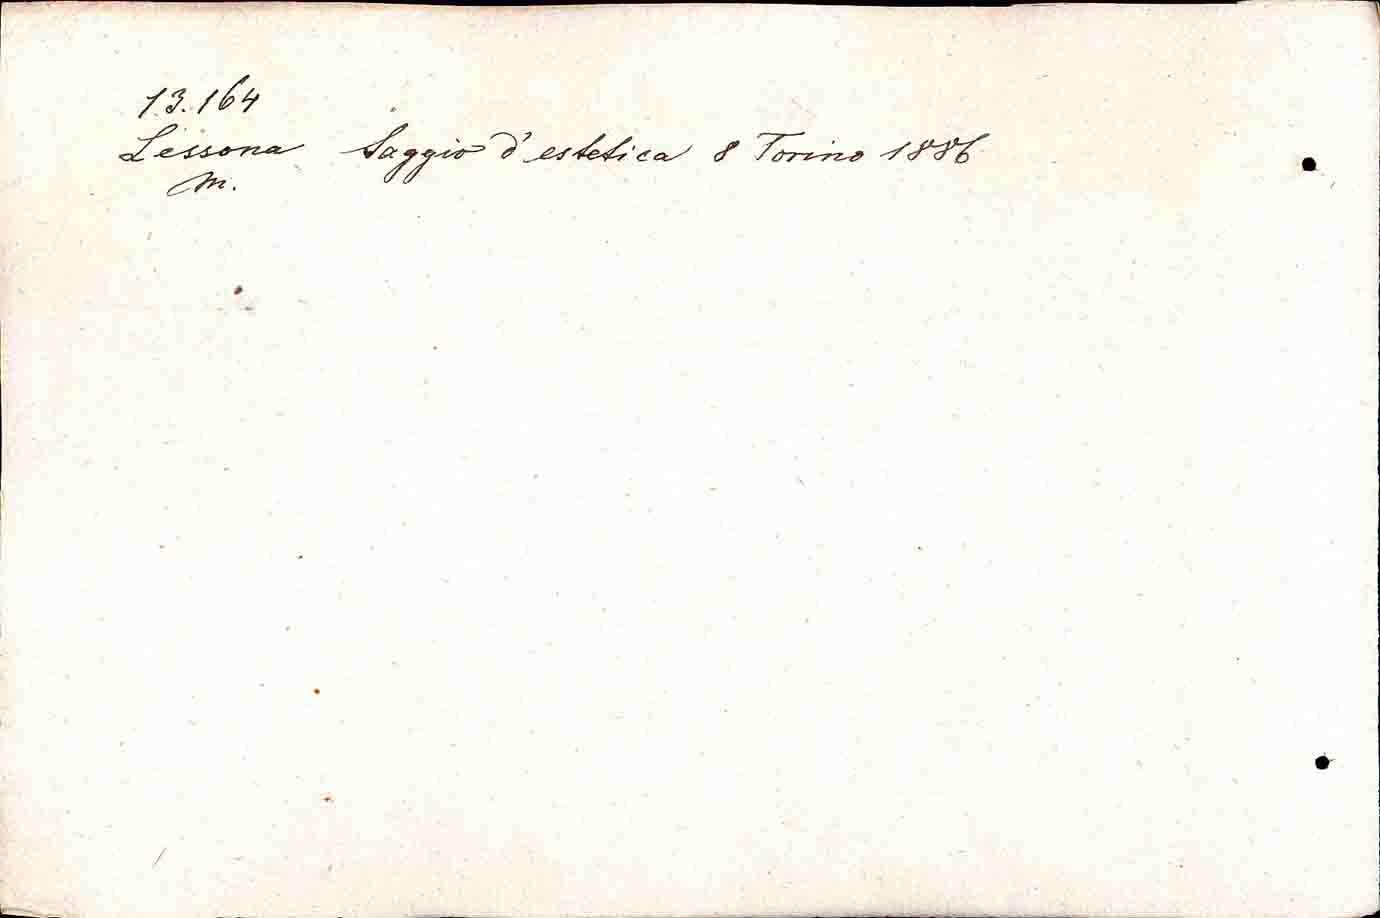 13.164
Lessona Saggio d'estetica 8 Torino 1886
M.